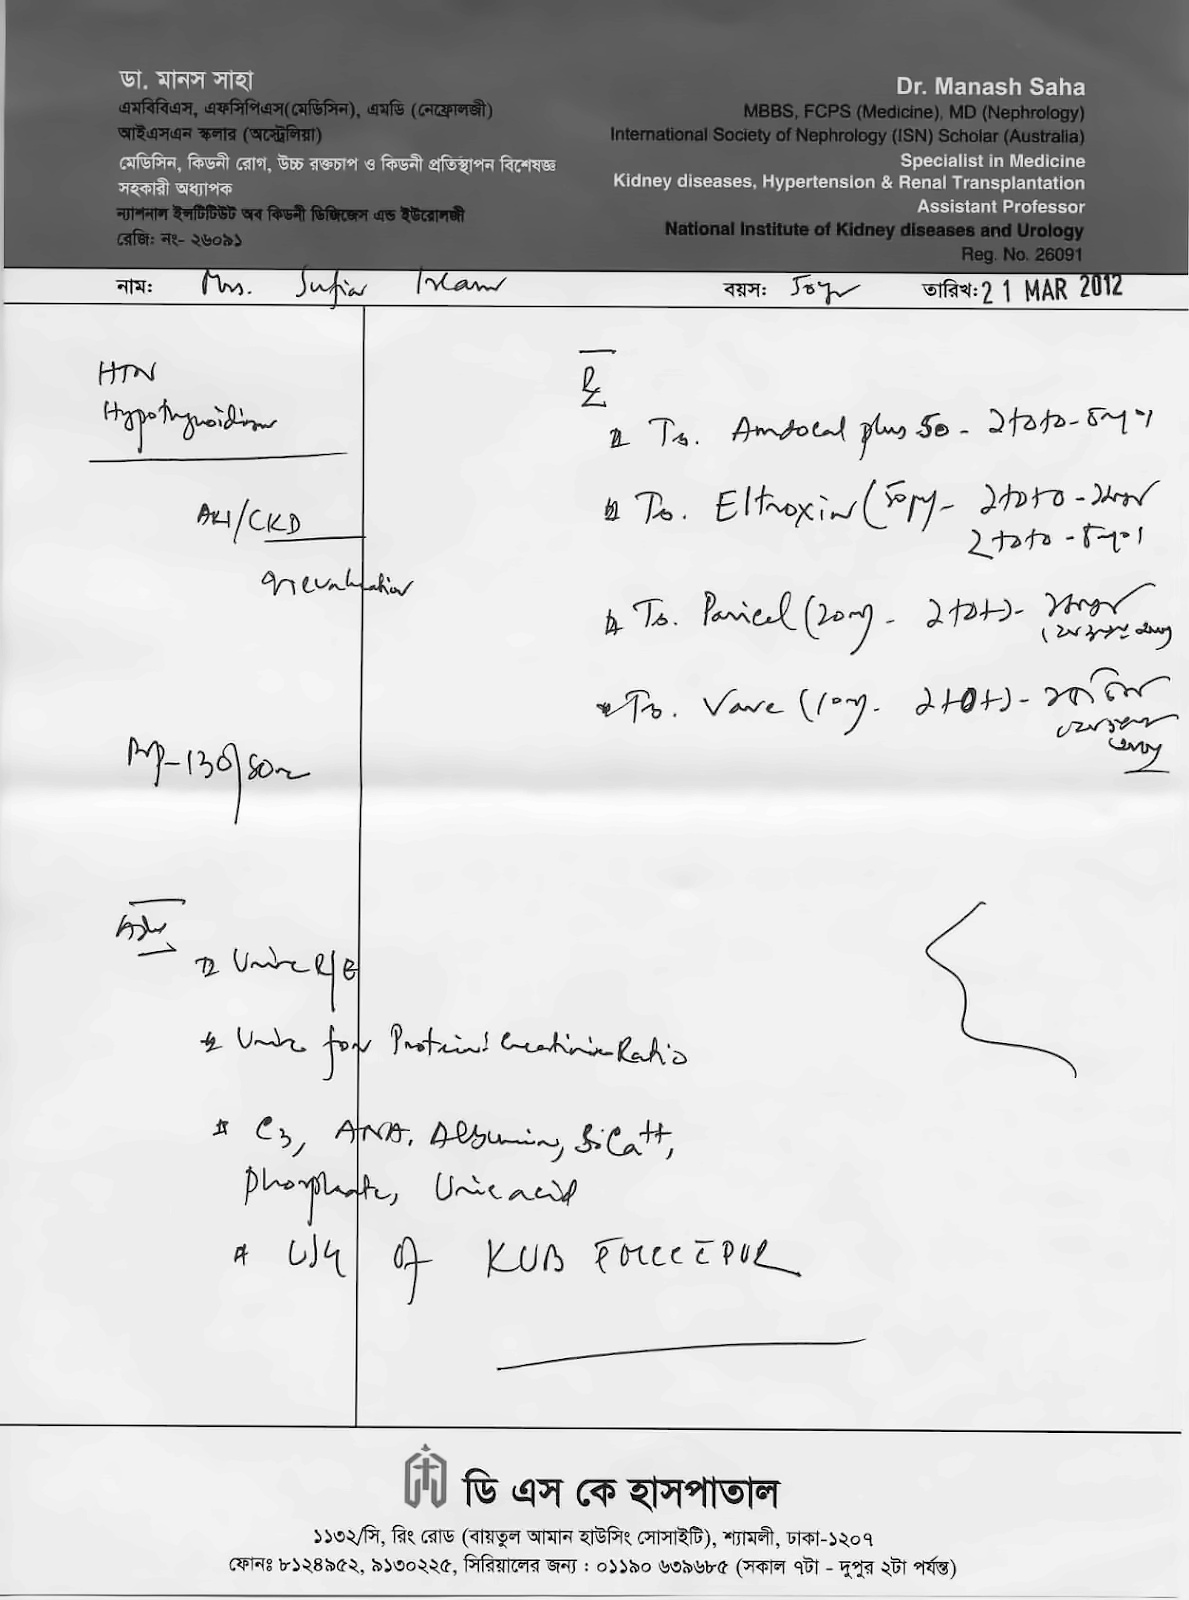 ডা. মানস সাহা
এমবিবিএস, এফসিপিএস(মেডিসিন), এমডি (নেফ্রোলজী)
আইএসএন স্কলার (অস্ট্রেলিয়া)
মেডিসিন, কিডনী রোগ, উচ্চ রক্তচাপ ও কিডনী প্রতিস্থাপন বিশেষজ্ঞ
সহকারী অধ্যাপক
ন্যাশনাল ইনটিটিউট অব কিডনী ডিজিজেস এন্ড ইউরোলজী
রেজি: নং- ২৬০৯১
Dr. Manash Saha
MBBS, FCPS (Medicine), MD (Nephrology)
International Society of Nephrology (ISN) Scholar (Australia)
Specialist in Medicine
Kidney diseases, Hypertension & Renal Transplantation
Assistant Professor
National Institute of Kidney diseases and Urology
Reg. No. 26091
নাম: Mrs. Sufia Islam বয়স: তারিখ: 21 MAR 2012
HTN
Hypothyroidism
AKI/CKD
BP-130/80
Adv
Urine R/E
Urine for Protein: Creatinine Ratio
C3, ANA. Albumin, S. Ca++,
phosphate, Uric acid
USG of KUB
Rx
Tb. Amdocal plus 50 - ১+০+০ -
Tb. Eltroxin (50 - ১+০+০ -
১+০+০ -
Tb. Paricel (20mg - ১+০+১ -
Tb. Vave (10mg - ১+০+১ -
ডি এস কে হাসপাতাল
১১৩২/সি, রিং রোড (বায়তুল আমান হাউসিং সোসাইটি), শ্যামলী, ঢাকা-১২০৭
ফোনঃ ৮১২৪৯৫২, ৯১৩০২২৫, সিরিয়ালের জন্য : ০১১৯০ ৬৩৯৬৮৫ (সকাল ৭টা - দুপুর ২টা পর্যন্ত)